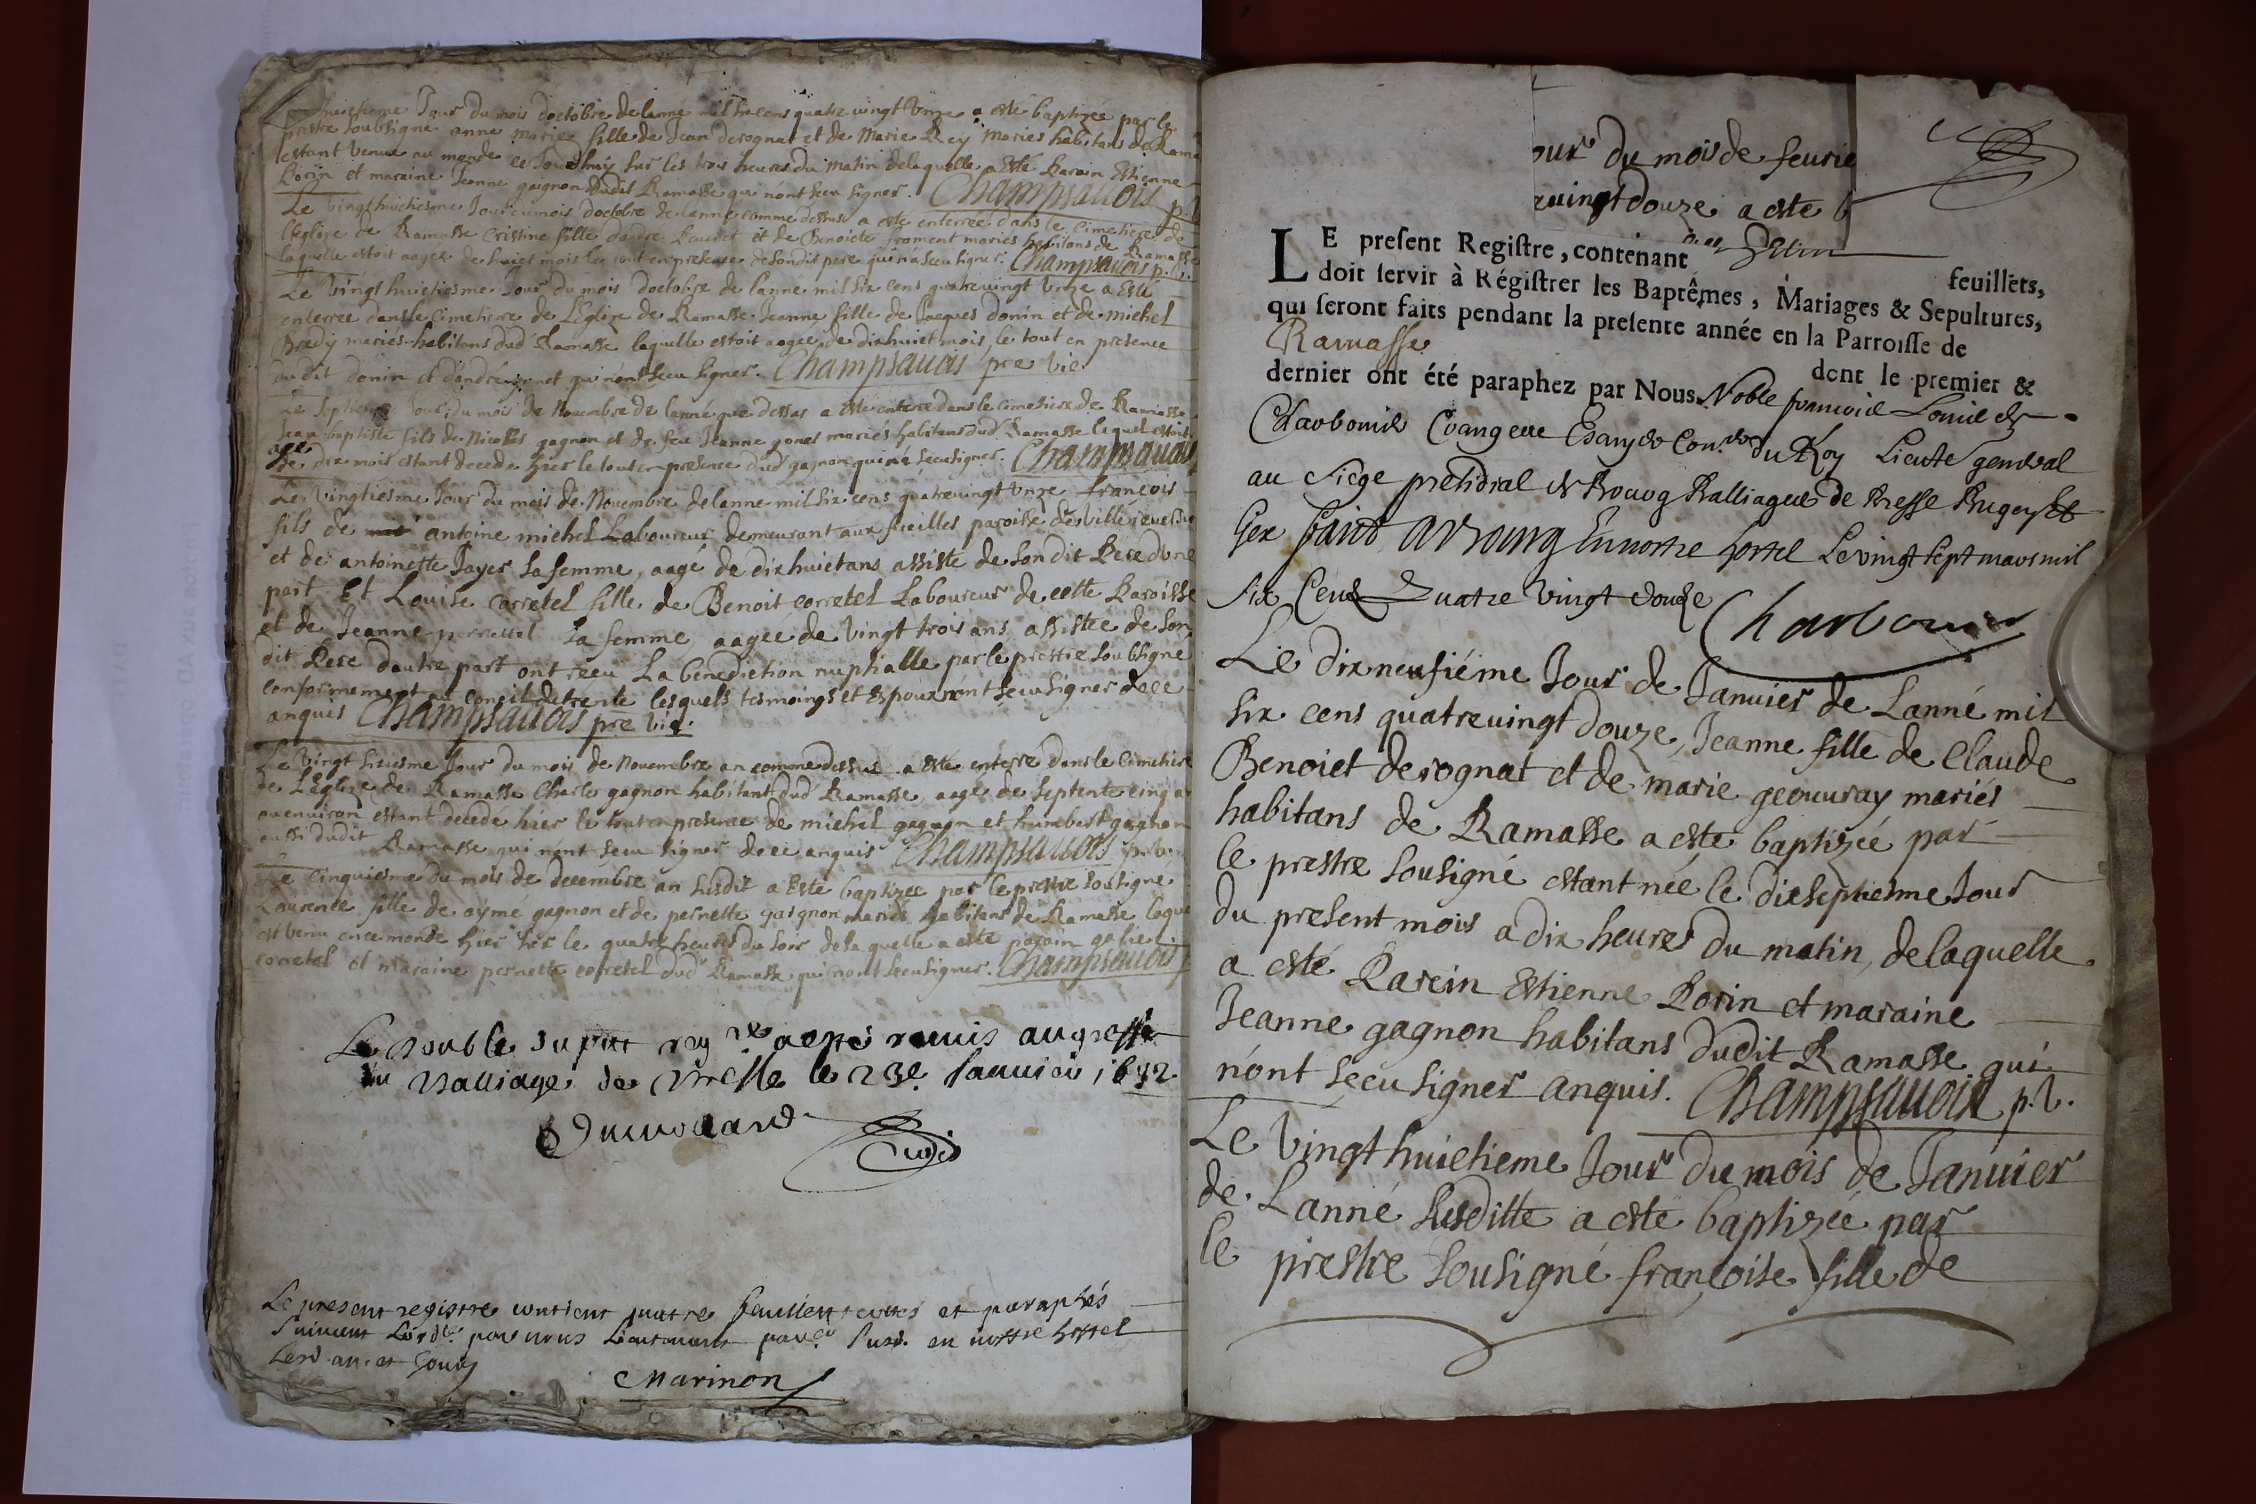 huictieme Jour du mois doctobre de lanné mil six cens quatre vingt Unze a esté baptizée par le
prestre soubsigné anne mariez fille de Jean derognat et de Marie Rey Mariés habitans de Rama
estant venue au monde ce Jourdhuy sur les trois heures du matin de laquelle a Esté Parain Estienne
Lorin et maraine Jeanne gaignon dudit Ramasse qui n'ont sceu signer. Champsauois p. V
Le vingthuictiesme Jour du mois doctobre de lanné comme dessus a esté enterrée dans le cimetiere de
l'eglise de Ramasse Cristine fille dandré et de Benoiete froment mariés habitans de Ramasse
laquelle estoit aagee de huict mois le tout en presence de sondit pere qui n'a sceu signer. Champsauois p. V.
Le Vingthuictiesme Jour du mois doctobre de lanne mil six cens quatrevingt Unze a Esté
enterrée dans le Cimetiere de L'Eglise de Ramasse Jeanne fille de Jacques donin et de michel
mariés habitans dud Ramasse laquelle estoit aagée de dixhuict mois le tout en presence
dudit donin et d'andré qui n'ont sceu signer. Champsauois pre Vic.
Le Septieme Jour du mois de Novembre de lanné que dessus a esté enterré dans le cimetiere de Ramasse
Jean baptiste fils de Nicolas gagnon et de feu Jeanne mariés habitans dud Ramasse lequel estoit
agé
de dix mois estant decedé hier le tout en presence dud gagnon qui n'a sceu signer. Champsauois
Le Vingtiesme Jour du mois de Novembre de lanne mil six cens quatrevingt Unze francois
fils de antoine michel Laboureur demeurant aux fueilles paroisse de Villereuersure
et de antoinette Jayer sa femme, aagé de dixhuict ans assisté de son dit Pere dune
part Et Louise corretel fille de Benoit corretel Laboureur de cette Paroisse
et de Jeanne sa femme aagée de vingt trois ans assistée de son
dit Pere dautre part ont receu La benediction nuptialle par le prestre soubsigné
conformement au concil de trente lesquels tesmoings et Espoux n'ont sceu signer de ce
anquis Champsauois pre Vic.
Le vingt sixiesme Jour du mois de Novembre an comme dessus a esté enterré dans le cimetiere
de L'Eglise de Ramasse Charles gagnon habitant dud Ramasse aagé de septente cinq an
ou environ estant decedé hier le tout en presence de michel gagnon et humbert gagnon
aussi dudit Ramasse qui n'ont sceu signer de ce anquis Champsauois
Le Cinquiesme du mois de decembre an susdit a Esté baptizée par le prestre sousigné
Laurence fille de aymé gagnon et de pernette gaignon mariés habitans de Ramasse laque
est venu en ce monde hier sur le quatre heures du soir de la quelle a esté parain
corretel et maraine pernette corretel dud Ramasse qui n'ont sceu signer. Champsauois
Le double du pnt reg.re a esté remis au greffe
du Balliage de Bresse le 23e Januier 1692.
Le present registre contient quatre feuillets cottés et paraphés
suiuant Lord.e par nous Lieutenant part.er susd. en nostre hostel
Lesd. an et jour
Marinon
our du mois de feurie
euingt douze a este b
LE present Registre, contenant feuillets,
doit servir à Régistrer les Baptêmes, Mariages & Sepultures,
qui seront faits pendant la presente année en la Parroisse de
Ramasse dont le premier &
dernier ont été paraphez par Nous Noble francois Louis de
Charbonnier Crangeac Con.er du Roy Lieutt general
au Siege presidial de Bourg Balliage de Bresse Bugey et
Gex fait a Bourg En nostre hostel Le vingt sept mars mil
six Cent Quatre Vingt douze Charbonnier
Le dixneufiéme Jour de Januier de Lanné mil
six cens quatreuingt douze, Jeanne fille de Claude
Benoiet derognat et de marie geouuray mariés
habitans de Ramasse a esté baptizée par
le prestre sousigné estant née le dixseptiesme Jour
du present mois a dix heures du matin, de laquelle
a esté Parein Estienne Lorin et maraine
Jeanne gagnon habitans dudit Ramasse qui
n'ont sceu signer anquis. Champsauois p. V.
Le Vingt huictieme Jour du mois de Januier
de Lanné susditte a esté baptizée par
le prestre sousigné françoise fille de